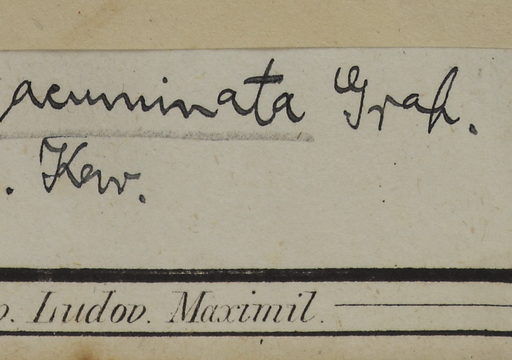 acuminata Grah.
. Kew.
. Ludov. Maximil.